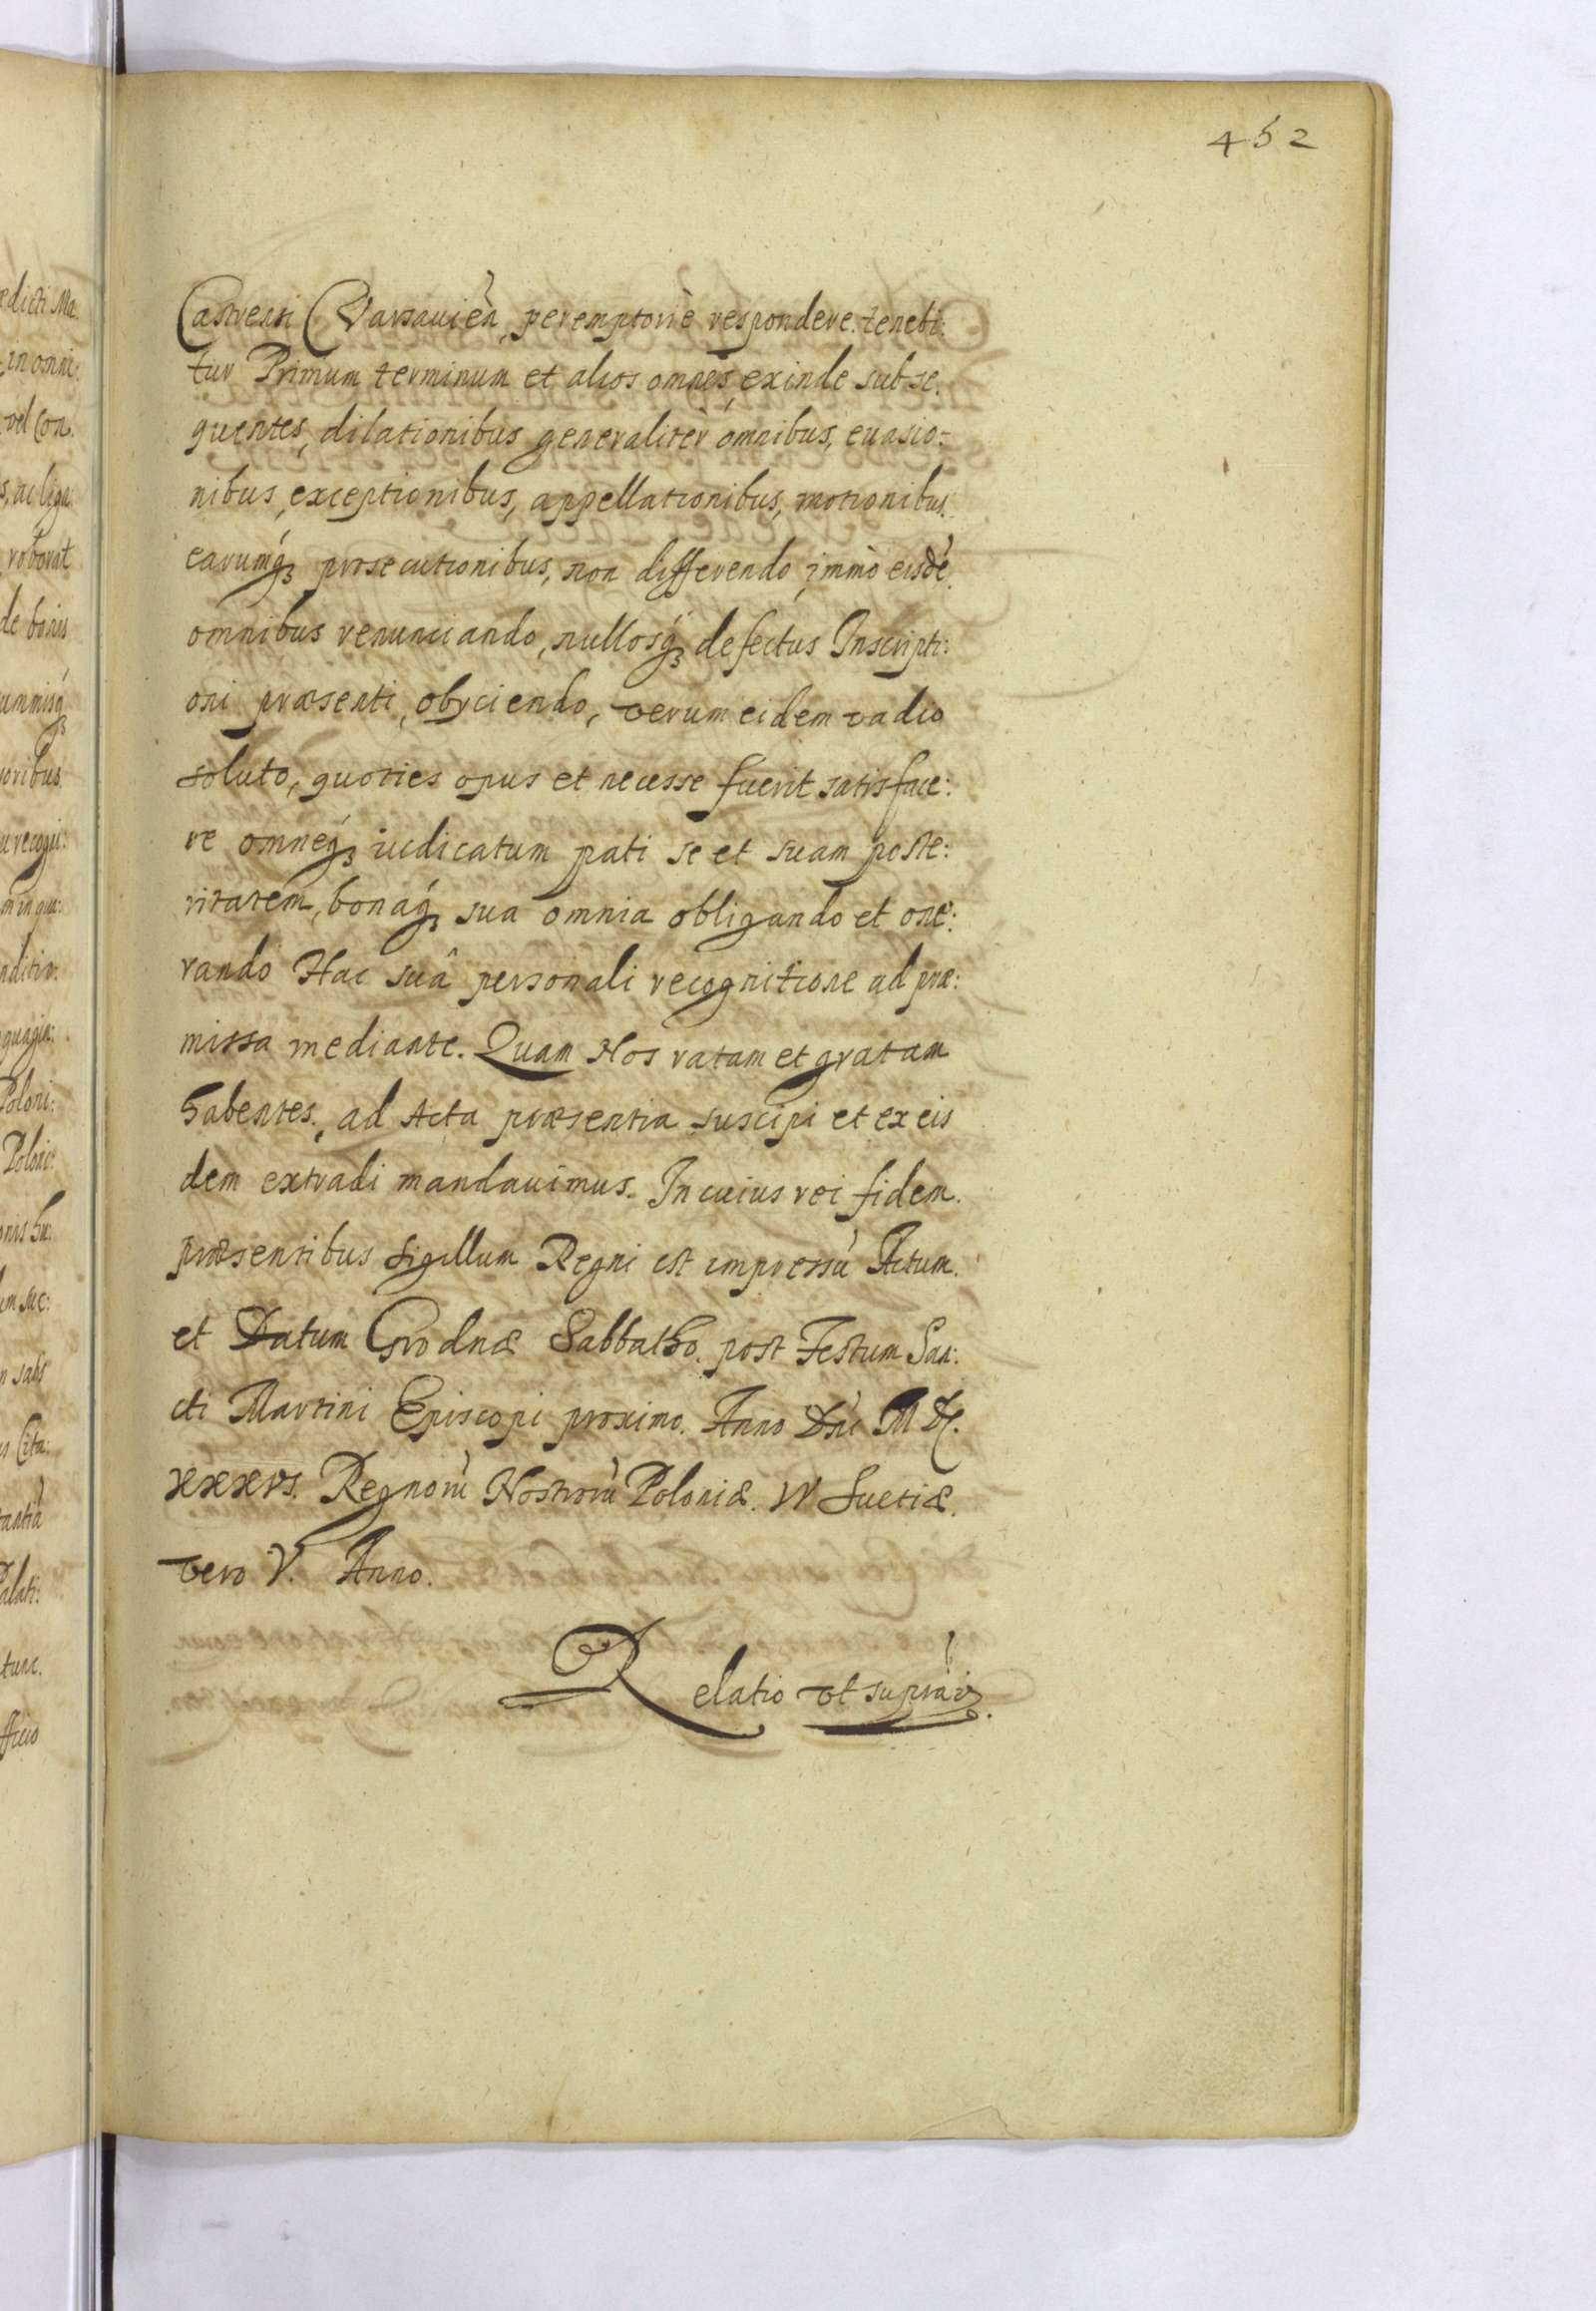 452
Castrensi Varsauieñ, peremptoriè respondere tenebi:
tur Primum terminum et alios omnes, exinde subse.
quentes, dilationibus generalitèr omnibus, euasio:
nibus, exceptionibus, appellationibus, motionibus.
earumq́ꝫ prosecutionibus, non differendo, immò eisdẽ
omnibus renunciando, nullosq́ꝫ defectus Inscripti:
oni præsenti, obyciendo, verum eidem vadio
soluto, quoties opus et necesse fuerit satisface:
re omneq́ꝫ iudicatum pati se et suam poste:
ritatem, bonaq́ꝫ sua omnia obligando et one:
rando Hac suâ personali recognitione ad præ:
missa mediante. Quam Nos ratam et gratam
habentes, ad Acta præsentia suscipi et ex eis
dem extradi mandauimus. In cuius rei fidem.
præsentibus Sigillum Regni est impressũ Actum.
et Datum Grodnæ Sabbatho. post Festum San:
cti Martini Episcopi proximo. Anno Dñi M DC.
XXXVI. Regnorũ Nostrorũ Poloniæ. IV Suetiæ.
vero V. Anno.
Relatio vt supra.
ædicti Ma:
in omni:
vel Con.
s, ac liga:
roborat
de bonis
umnisq́ꝫ
oribus
Poloni:
Poloni:
Cita:
alati:
tunc.
fficio